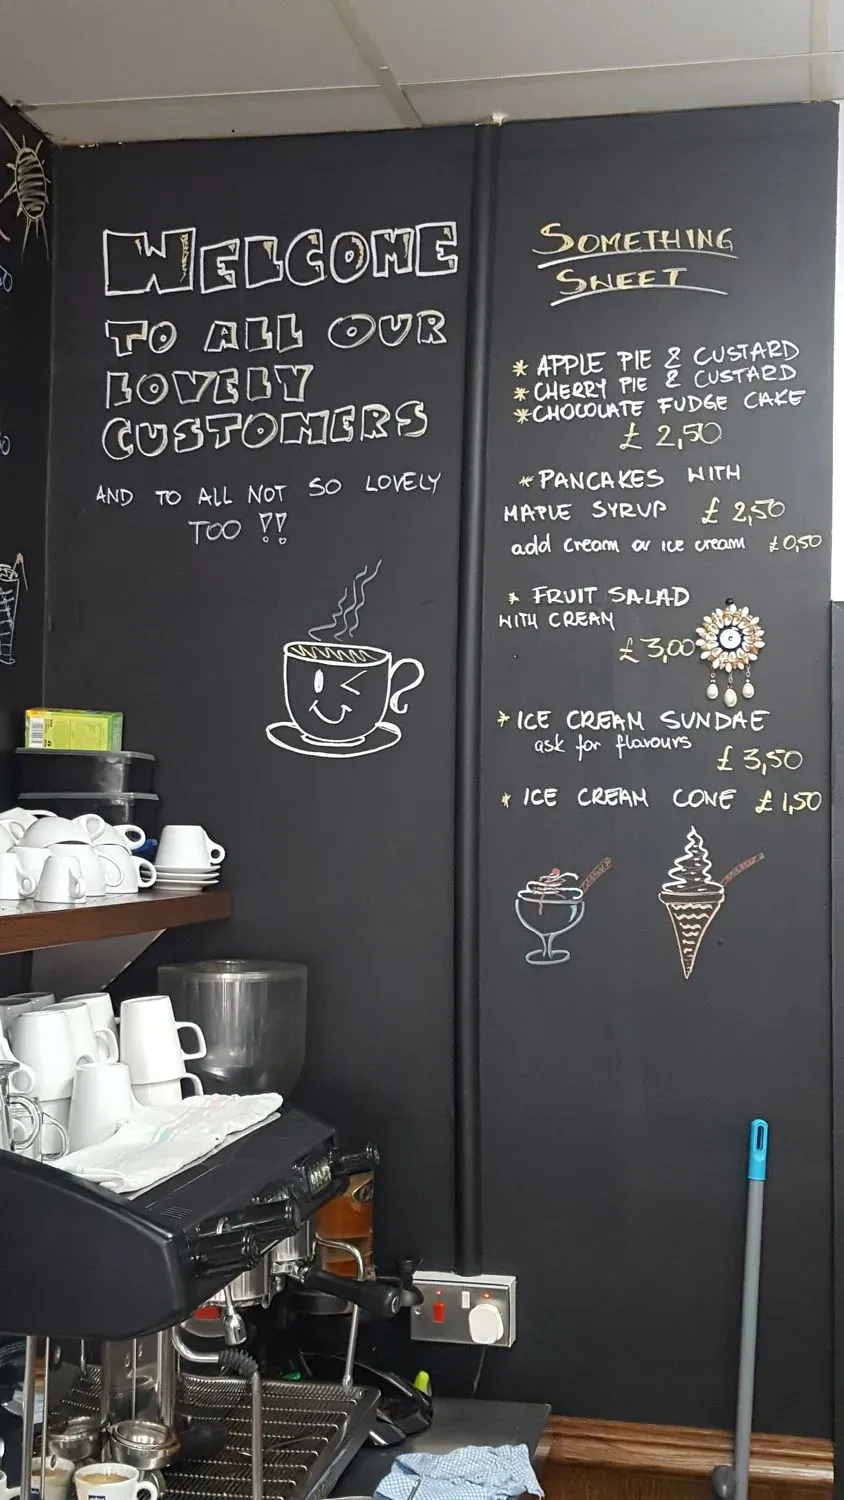 WELCOME
TO ALL OUR
LOVELY
CUSTOMERS
AND TO ALL NOT SO LOVELY
TOO !!
SOMETHING
SWEET
* APPLE PIE & CUSTARD
* CHERRY PIE & CUSTARD
* CHOCOLATE FUDGE CAKE
£ 2,50
* PANCAKES WITH
MAPLE SYRUP £ 2,50
add cream or ice cream £0,50
* FRUIT SALAD
WITH CREAM
£ 3,00
* ICE CREAM SUNDAE
ask for flavours
£ 3,50
* ICE CREAM CONE £ 1,50